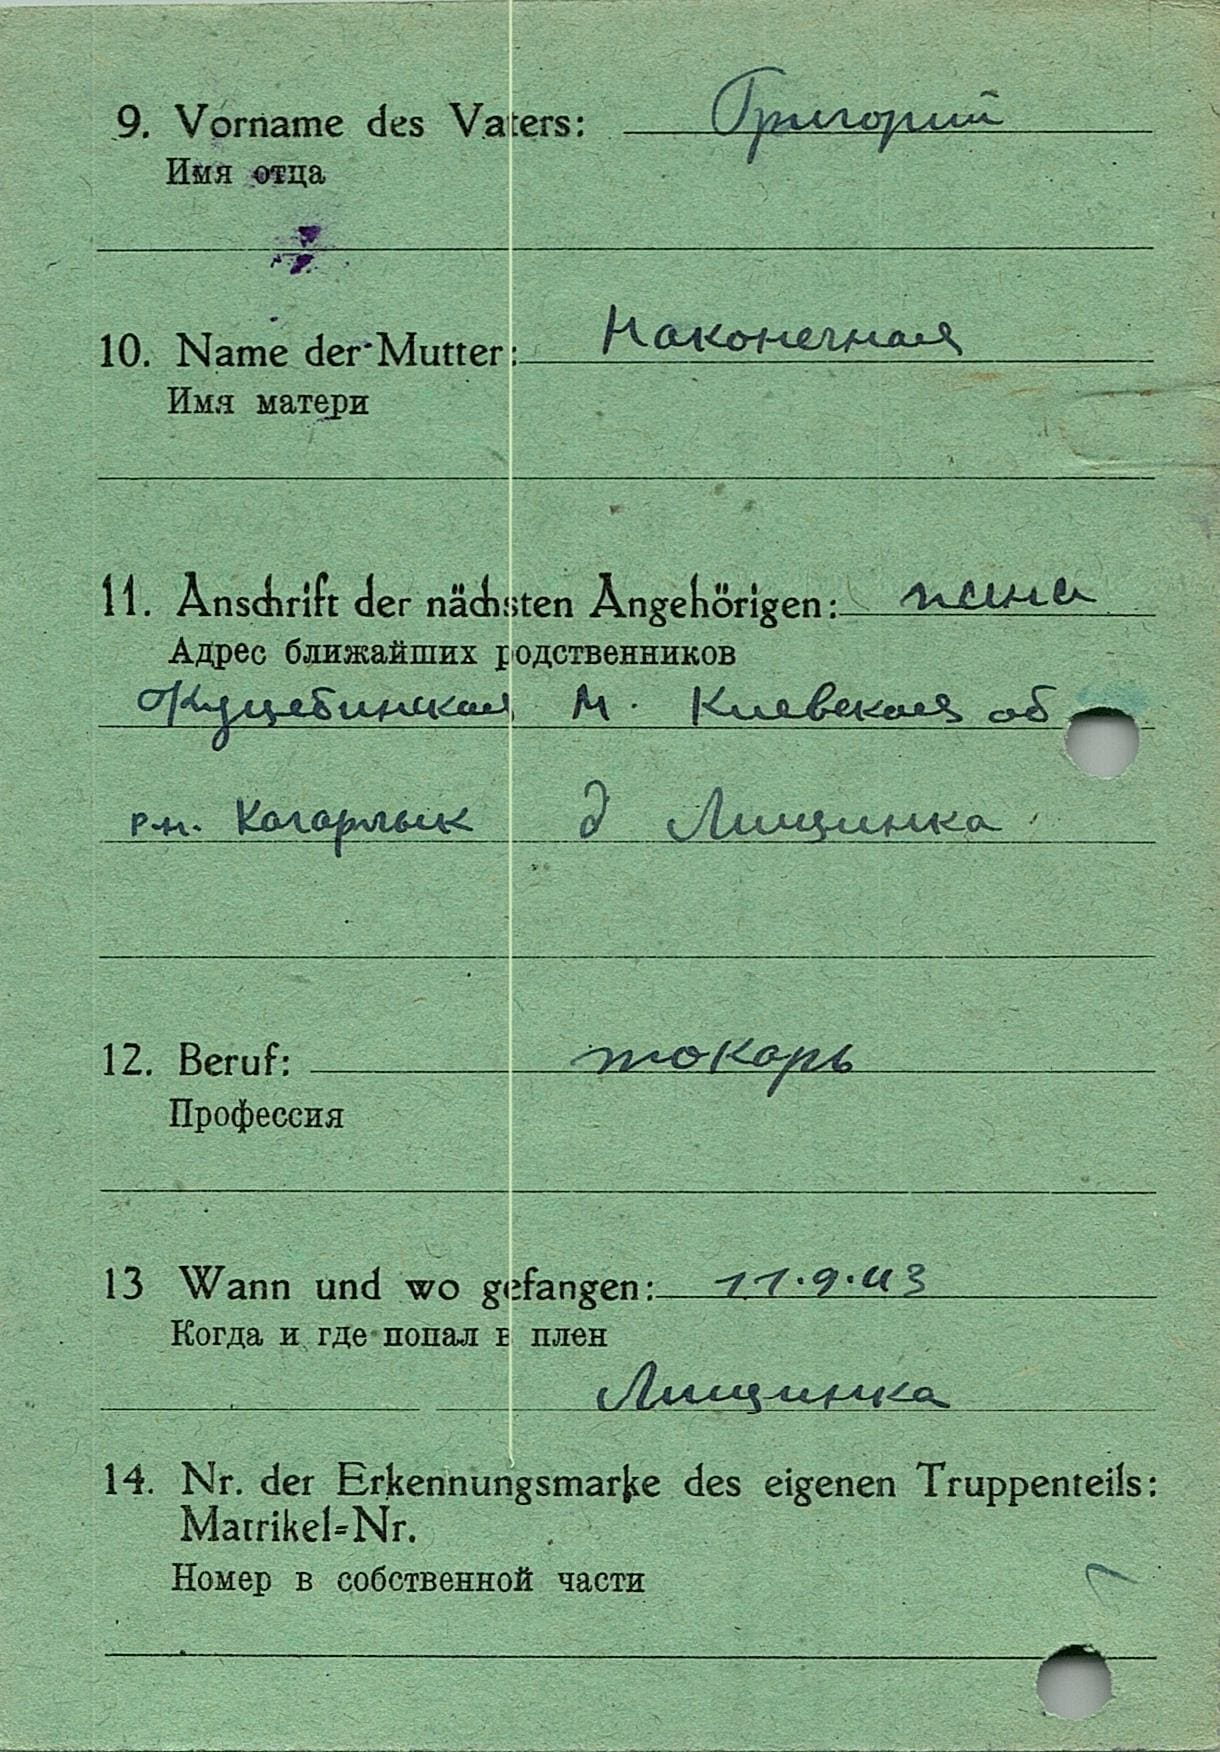 9. Vorname des Vaters: Григорий
Имя отца
10. Name der Mutter: Наконечная
Имя матери
11. Anschrift der nächsten Angehörigen:
Адрес ближайших родственников
М. Киевская об
р.н. Кагарлык д Лищинка
12. Beruf: токарь
Профессия
13 Wann und wo gefangen: 11.9.43
Когда и где попал в плен
Лищинка
14. Nr. der Erkennungsmarke des eigenen Truppenteils:
Matrikel=Nr.
Номер в собственной части